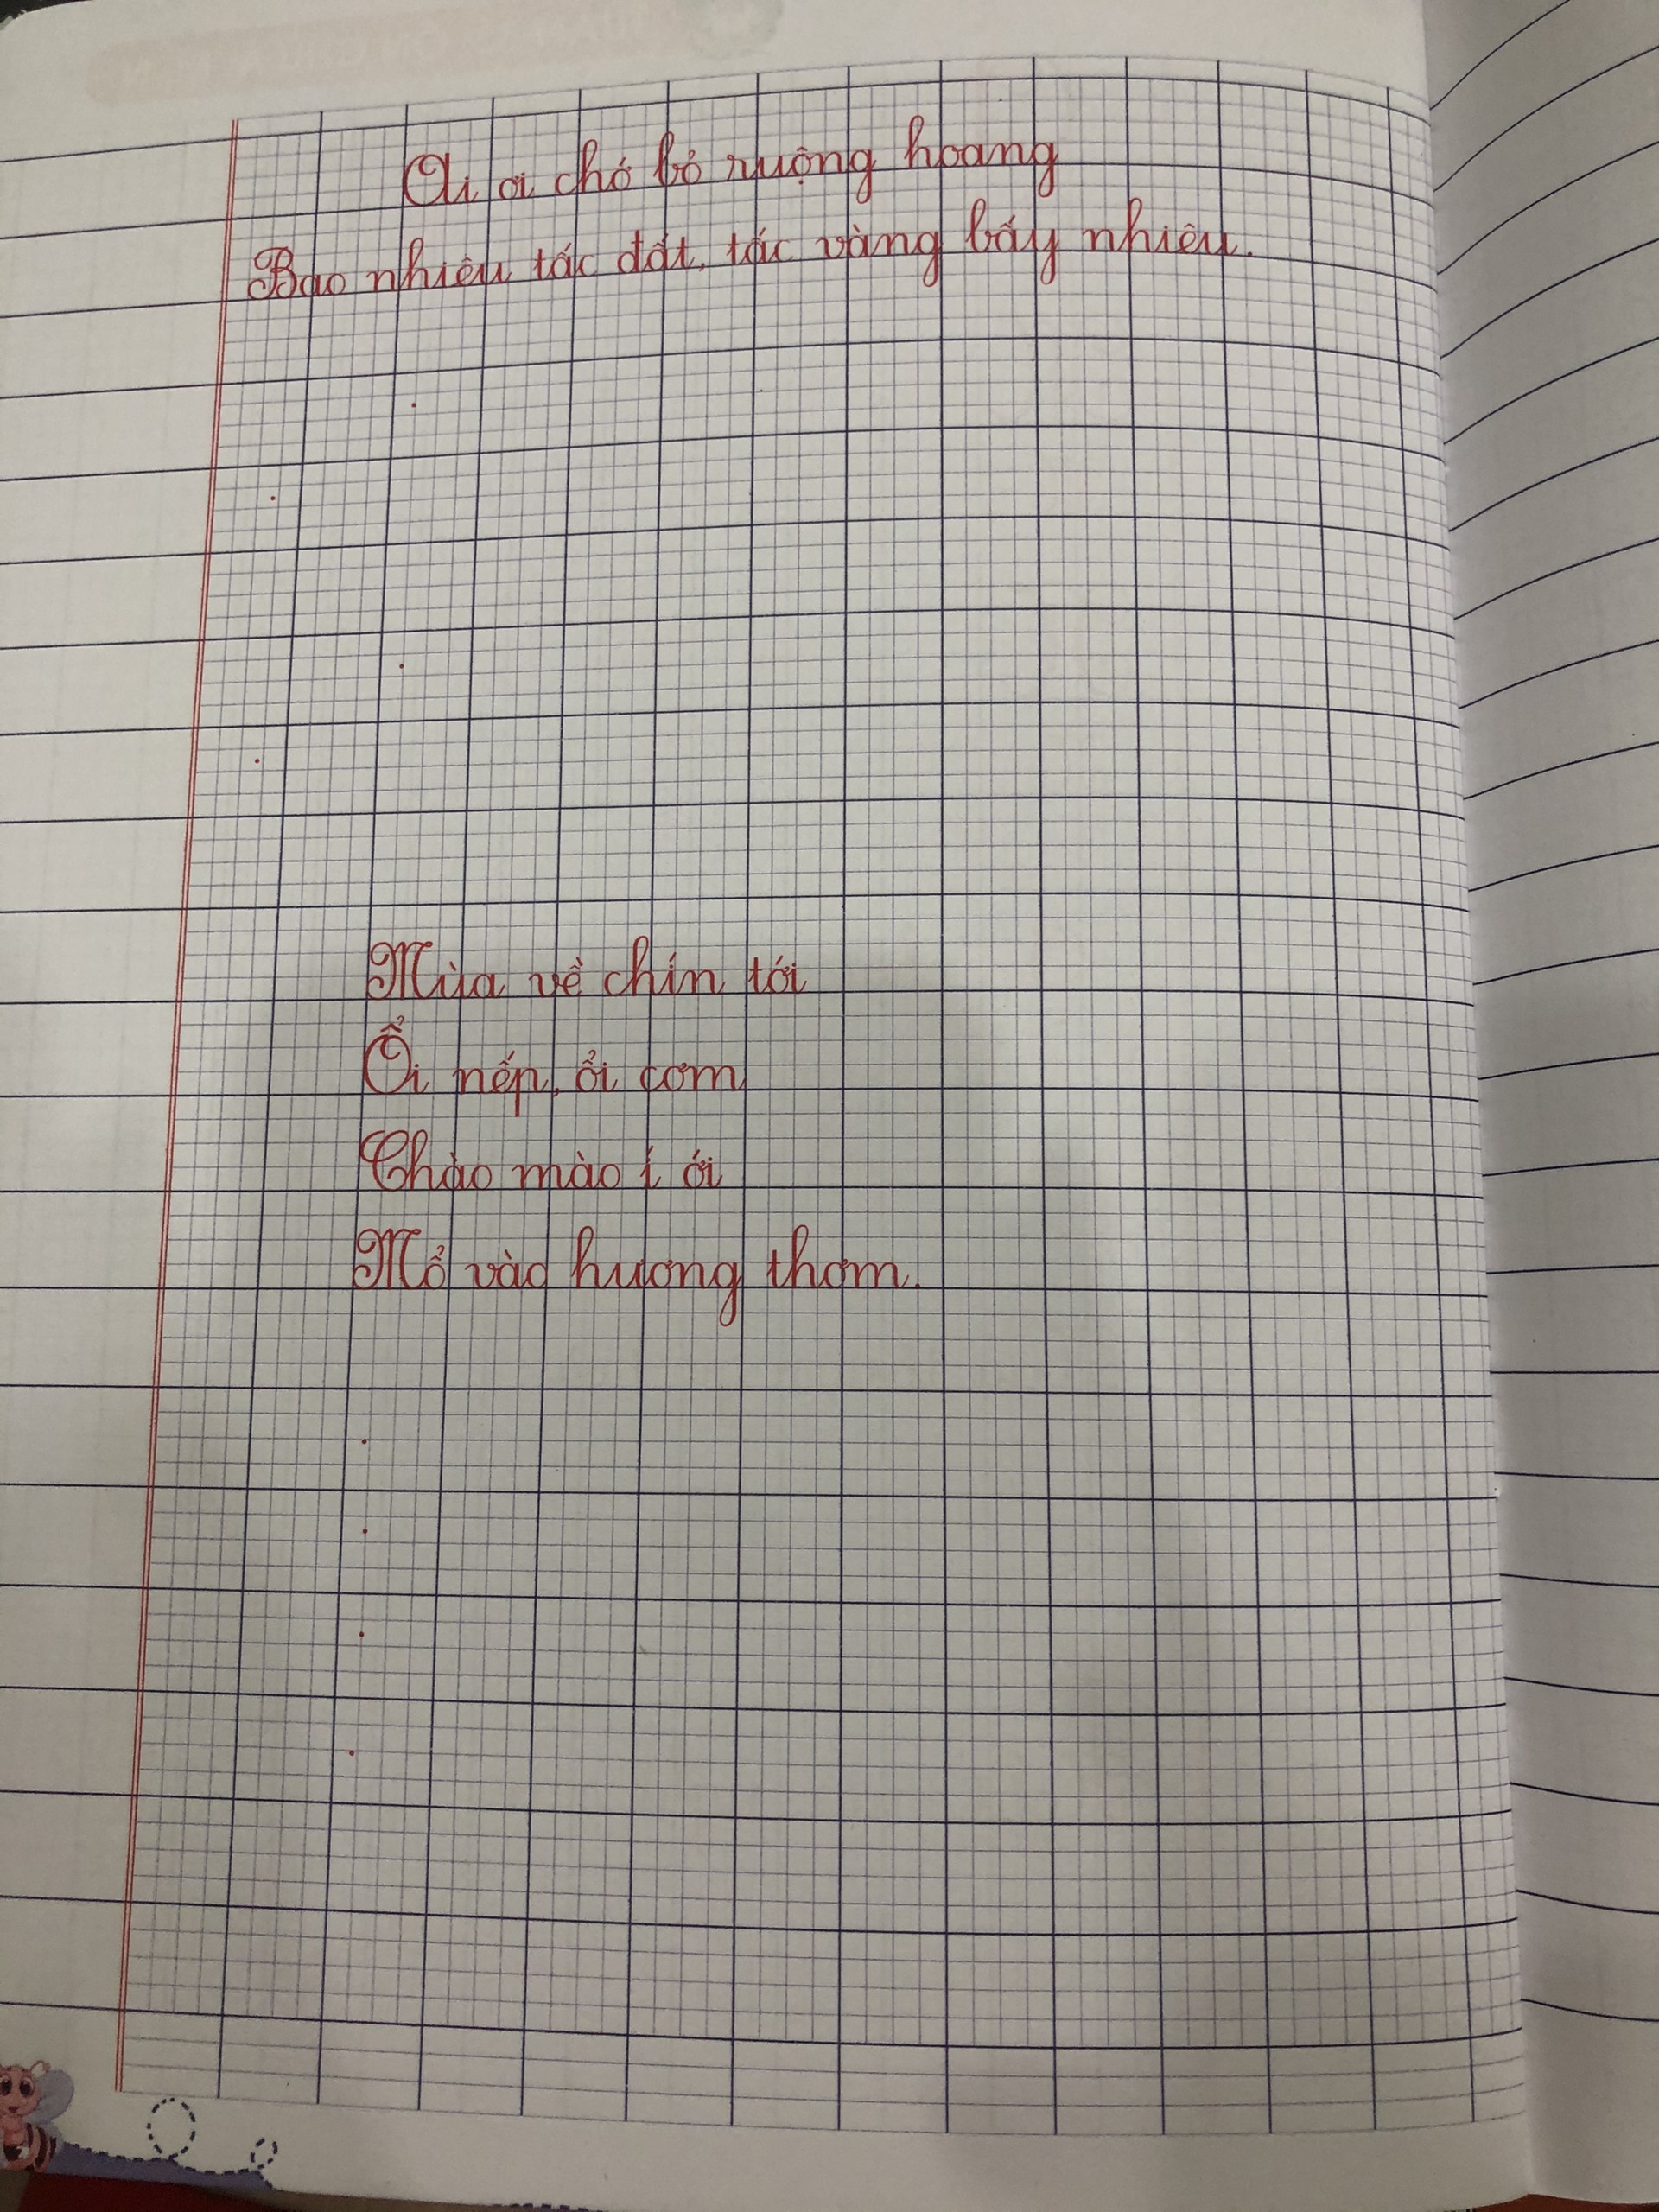 Ai ơi chớ bỏ ruộng hoang
Bao nhiêu tấc đất, tấc vàng bấy nhiêu.
Mùa về chín tới
Ổi nếp, ổi cơm
Chào mào í ới
Mổ vào hương thơm.